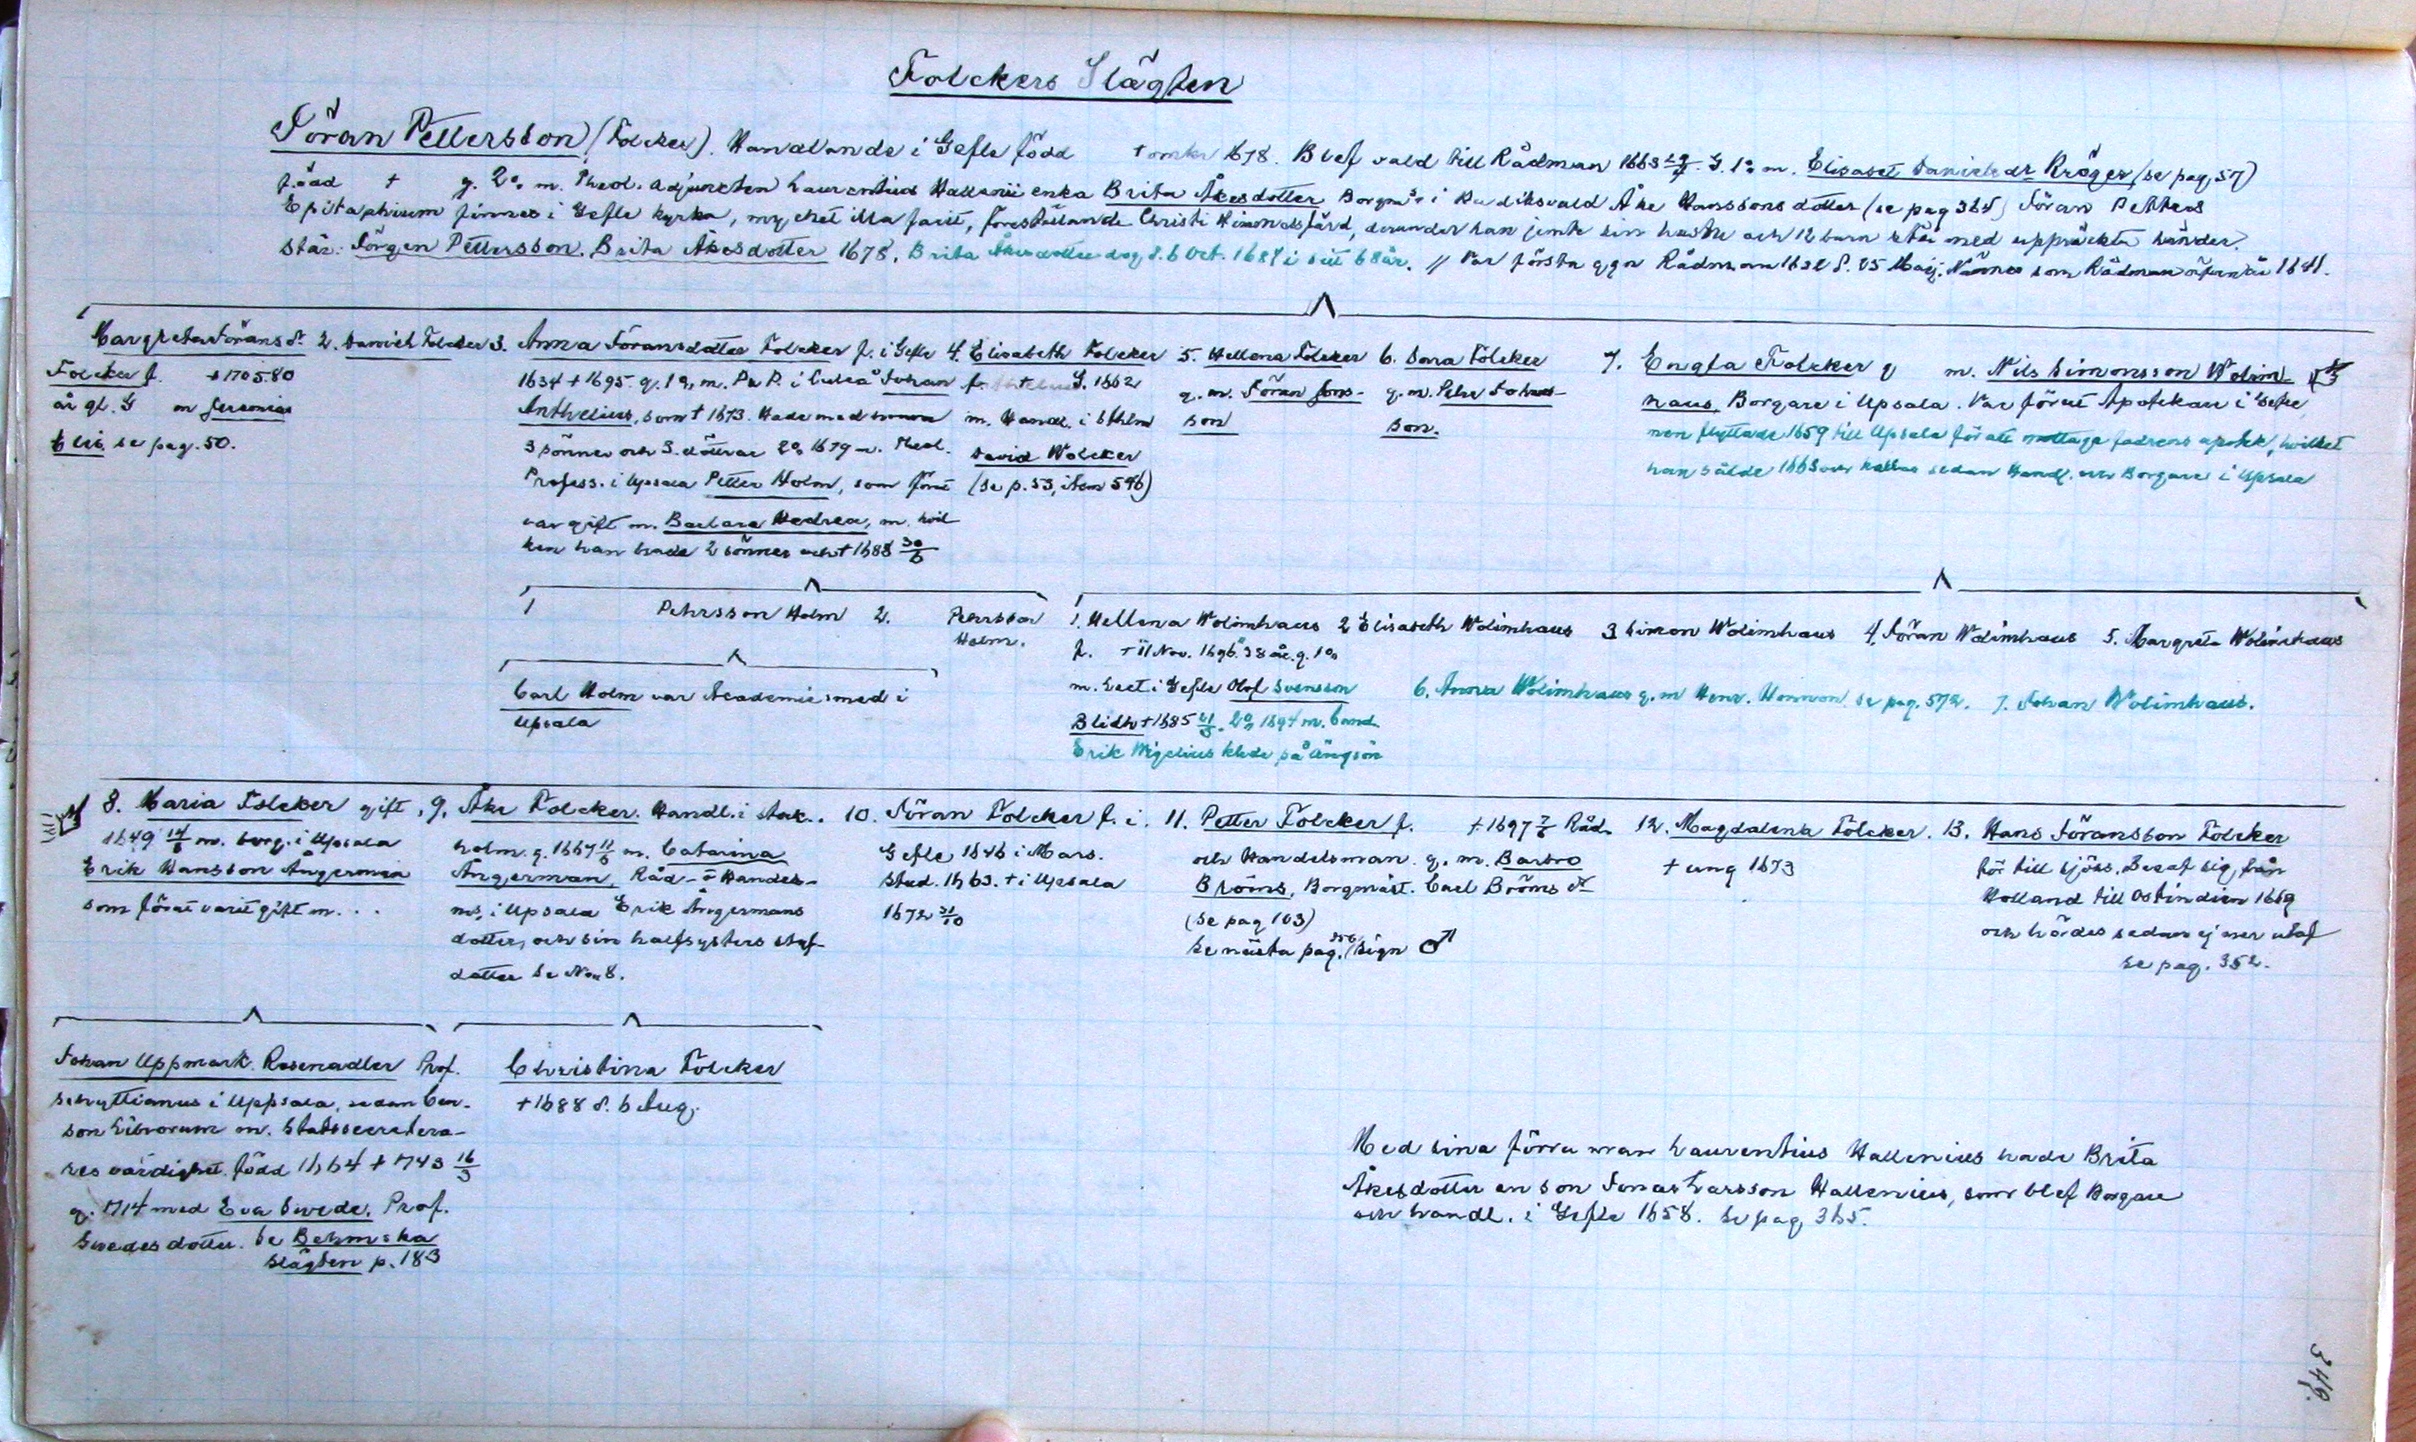 Folckers Slägten
Jöran Pettersson (Folcker). Handlande i Gefle född † omkr 1678. Blef vald till Rådman 1663 G. 1:o m. Elisabet Danielsdr Kröger (se pag. 57)
född † g. 2:o m. Theol. Adjuncten Laurentius Hallenii enka Brita Åkesdotter Borgm:s i Hudiksvald Åke Hanssons dotter (se pag 365) Jöran Petters
Epitaphium finnes i Gefle kyrka, mychet illa farit, föreställande Christi Himmelsfärd, derunder han jemte sin hustru och 12 barn stå med uppräckta händer.
Står: Jörgen Pettersson. Brita Åkesdotter 1678. Brita Åkesdotter dog d. 6 Oct. 1687 i sitt 68 år. // Var första ggn Rådman d. 25 Maij. Nämnes som Rådman 1641.
Margreta Jörans dr 2. Daniel Folcker 3. Anna Jöransdotter Folcker f. i Gefle 4. Elisabeth Folcker 5. Hellena Folcker 6. Sara Folcker 7. Engla Folcker g m. Nils Simonsson Wolim-
Folcker f. † 1705.80
år gl. G m
Elis. se pag. 50.
1634 † 1695. g. 1:o m. P. P. i Luleå Johan
Anthelius, som † 1673. Hade med
3 söner och 3 döttrar 2:o 1679 m. Theol.
Profess. i Upsala Petter Holm, som förut
var gift m. Barbara Hedrea, m. hvil
ken han hade 2 sönner och † 1688 30/6
f. G. 1662
m. Handl. i Sthlm
David Wolcker
(Se p. 53, item 546)
g. m. Jöran Jons-
son
g. m. Pehr Johans-
son.
haus. Borgare i Upsala. Var förut Apotekare i Gefle
men flyttade 1659 till Upsala för att mottaga fadrens apotek, hvilket
han sålde 1663 och kallas sedan Handl. och Borgare i Upsala
1 Pehrsson Holm 2. Pehrsson
Holm.
Carl Holm var Academiesmed i
Upsala
1. Hellena Wolimhaus 2 Elisabeth Wolimhaus 3 Simon Wolimhaus 4. Jöran Wolimhaus 5. Margreta Wolimhaus
f. † 11 Nov. 1696. 38 år. g. 1:o
m. Lect i Gefle Olof Svensson
Blidh † 1685 21/3. 2:o 1694 m. Cand.
Erik Wigelius khde på Ängsön
6. Anna Wolimhaus g. m Henr. se pag. 572. 7. Johan Wolimhaus.
8. Maria Folcker gift,
1649 14/6 m. borg. i Upsala
Erik Hansson Ångerman
som förut varit gift m. . .
9. Åke Folcker. Handl. i Stock.
holm. g. 1667 11/6 m. Catarina
Ångerman, Råd- o Handes-
ms, i Upsala Erik Ångermans
dotter, och sin halfsysters stuf-
dotter Se N:o 8.
10. Jöran Folcker f. i.
Gefle 1646 i Mars.
Stud. 1663. † i Upsala
1672 31/10
11. Petter Folcker f. † 1697 7/6 Råd-
och Handelsman g. m. Barbro
Bröms, Borgmäst. Carl Brööms dr
(Se pag 103)
Se nästa pag. 356 (sign ♂
12. Magdalena Folcker.
† ung 1673
13. Hans Jöransson Folcker
för till sjöss. Begaf sig från
Holland till Ostindien 1669
och hördes sedan ej mer utaf
se pag. 352.
Johan Uppmark. Rosenadler Prof.
Schyttianus i Uppsala, sedan Cen-
sor Librorum m. Statssecretera-
res värdighet. född 1664 † 1743 16/3
g. 1714 med Eva Swede. Prof.
Swedes dotter. Se Behmska
slägten p. 183
Christina Folcker
† 1688 d. 6 Aug.
Med sina förra man Laurentius Hallenius hade Brita
Åkesdotter en son Jonas Larsson Hallenius, som blef Borgare
och handl. i Gefle 1658. Se pag. 365.
349.